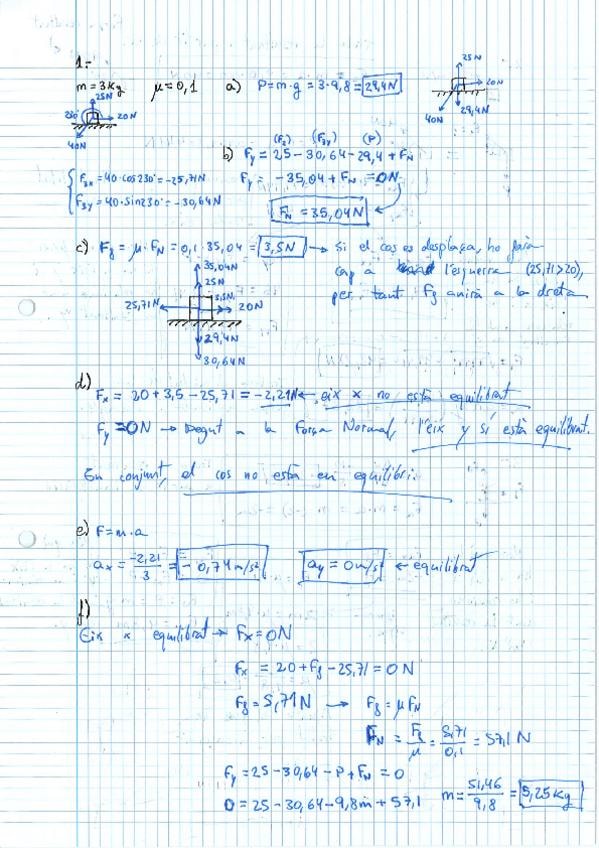 1.-
m = 3Kg μ = 0,1 a) P = m·g = 3·9,8 = 29,4N
25N
230°
20N
40N
25N
20N
40N
29,4N
(F2) (F3y) (P)
b) Fy = 25 - 30,64 - 29,4 + FN
F3x = 40·cos230° = -25,71N
F3y = 40·sin230° = -30,64N
Fy = -35,04 + FN = 0N
FN = 35,04N
c) Ff = μ·FN = 0,1·35,04 = 3,5N → Si el cos es desplaça, ho farà
cap a l'esquerra (25,71>20),
per tant Ff anirà a la dreta
35,04N
25N
3,5N
25,71N
20N
29,4N
30,64N
d)
Fx = 20 + 3,5 - 25,71 = -2,21N ← eix x no està equilibrat
Fy = 0N → Degut a la Força Normal, l'eix y sí està equilibrat.
En conjunt, el cos no està en equilibri.
e) F = m·a
ax = -2,21/3 = -0,74 m/s² ay = 0 m/s² ← equilibrat
f)
Eix x equilibrat → Fx = 0N
Fx = 20 + Ff - 25,71 = 0N
Ff = 5,71N → Ff = μ FN
FN = Ff/μ = 5,71/0,1 = 57,1 N
Fy = 25 - 30,64 - P + FN = 0
0 = 25 - 30,64 - 9,8m + 57,1 m = 51,46/9,8 = 5,25 Kg